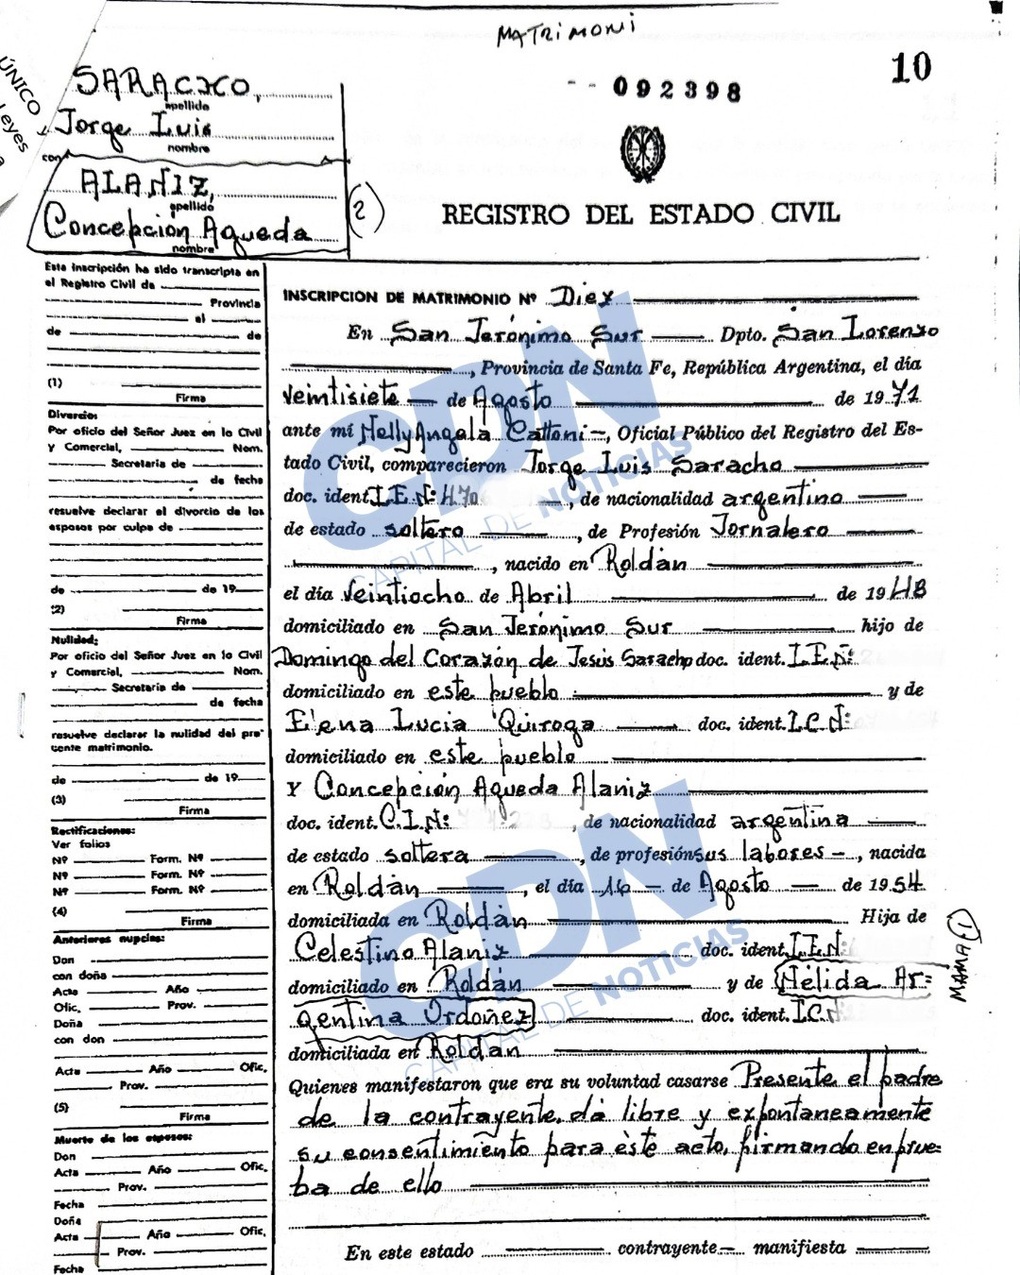 MATRIMONI
10
092398
ÚNICO y
leyes
SARACHO,
apellido
Jorge Luis
nombre
con
ALAÑIZ,
apellido
Concepción Agueda
nombre
(2)
REGISTRO DEL ESTADO CIVIL
Esta inscripción ha sido transcripta en
el Registro Civil de
Provincia
el
de de
(1)
Firma
Divorcio:
Por oficio del Señor Juez en lo Civil
y Comercial, Nom.
Secretaría de
de fecha
resuelve declarar el divorcio de los
esposos por culpa de
de de 19
(2)
Firma
Nulidad:
Por oficio del Señor Juez en lo Civil
y Comercial, Nom.
Secretaría de
de fecha
resuelve declarar la nulidad del pre-
cente matrimonio.
de de 19
(3)
Firma
Rectificaciones:
Ver folios
Nº Form. Nº
Nº Form. Nº
Nº Form. Nº
(4)
Firma
Anteriores nupcias:
Don
con doña
Acta Año
Ofic. Prov.
Doña
con don
Acta Año Ofic.
Prov.
(5)
Firma
Muerte de los esposos:
Don
Acta Año Ofic.
Prov.
Fecha
Doña
Acta Año Ofic.
Prov.
Fecha
INSCRIPCION DE MATRIMONIO Nº Diez
En San Jerónimo Sur Dpto. San Lorenzo
, Provincia de Santa Fe, República Argentina, el día
Veintisiete de Agosto de 1971
ante mí Nelly Angela Cattoni, Oficial Público del Registro del Es-
tado Civil, comparecieron Jorge Luis Saracho
doc. ident. L.E.Nº: 470 , de nacionalidad argentino
de estado soltero , de Profesión Jornalero
, nacido en Roldán
el día Veintiocho de Abril de 1948
domiciliado en San Jerónimo Sur hijo de
Domingo del Corazón de Jesús Saracho doc. ident. L.E.Nº:
domiciliado en este pueblo y de
Elena Lucia Quiroga doc. ident. L.C.Nº:
domiciliado en este pueblo
y Concepción Agueda Alaniz
doc. ident. C.I.Nº: , de nacionalidad argentina
de estado soltera , de profesión sus labores -, nacida
en Roldán , el día 16 de Agosto de 1954
domiciliada en Roldán Hija de
Celestino Alaniz doc. ident. L.E.Nº:
domiciliado en Roldán y de Nélida Ar=
gentina Ordoñez doc. ident. L.C.Nº
domiciliada en Roldan
MAMA (1)
Quienes manifestaron que era su voluntad casarse Presente el padre
de la contrayente, dá libre y expontaneamente
su consentimiento para èste acto, firmando en prue=
ba de ello
En este estado contrayente manifiesta
CDN
CAPITAL DE NOTICIAS
CDN
CAPITAL DE NOTICIAS